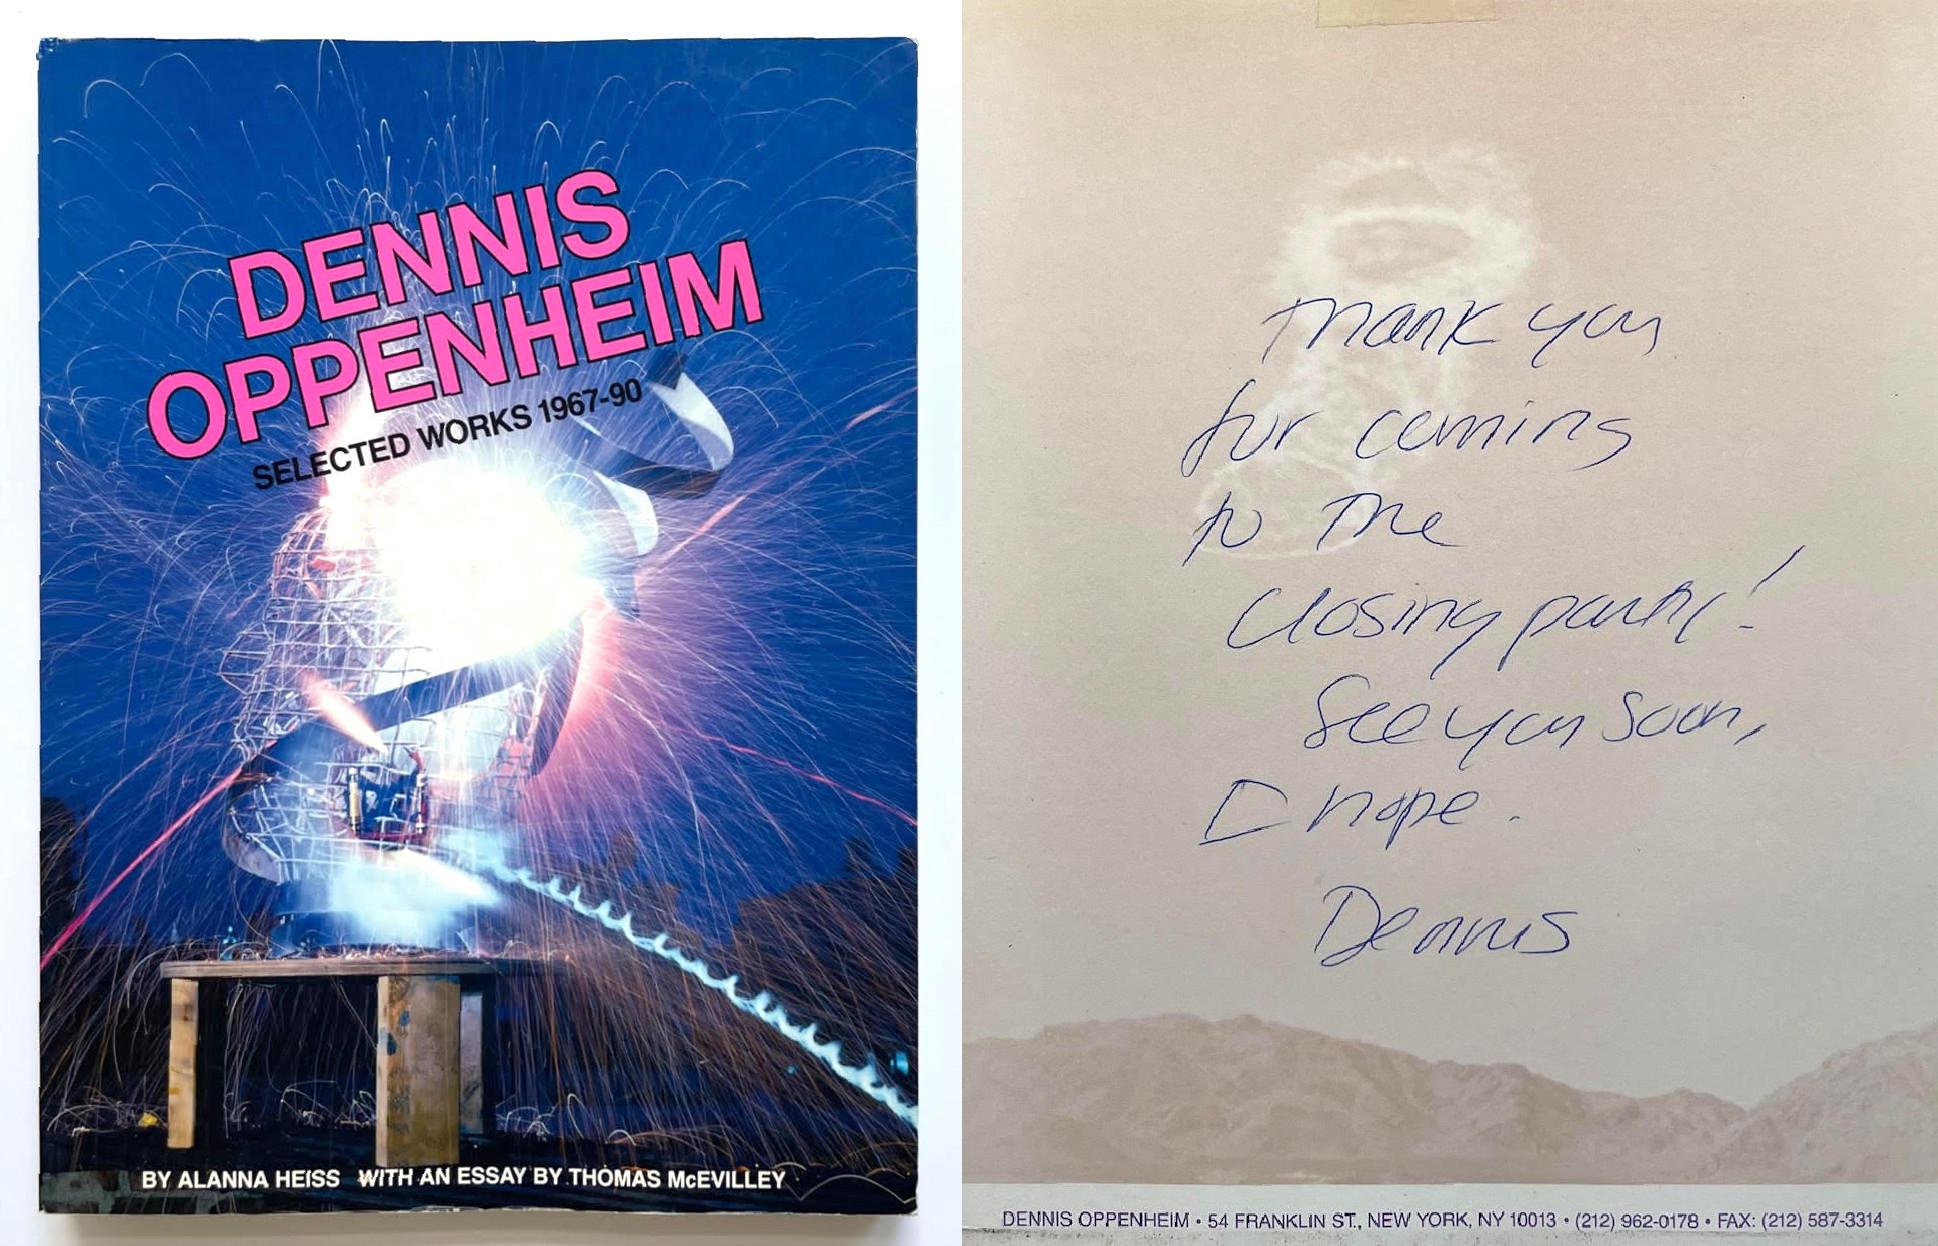 DENNIS
OPPENHEIM
SELECTED WORKS 1967-90
BY ALANNA HEISS WITH AN ESSAY BY THOMAS McEVILLEY
Thank you
for coming
to the
closing party!
See you soon,
I hope.
Dennis
DENNIS OPPENHEIM • 54 FRANKLIN ST., NEW YORK, NY 10013 • (212) 962-0178 • FAX: (212) 587-3314